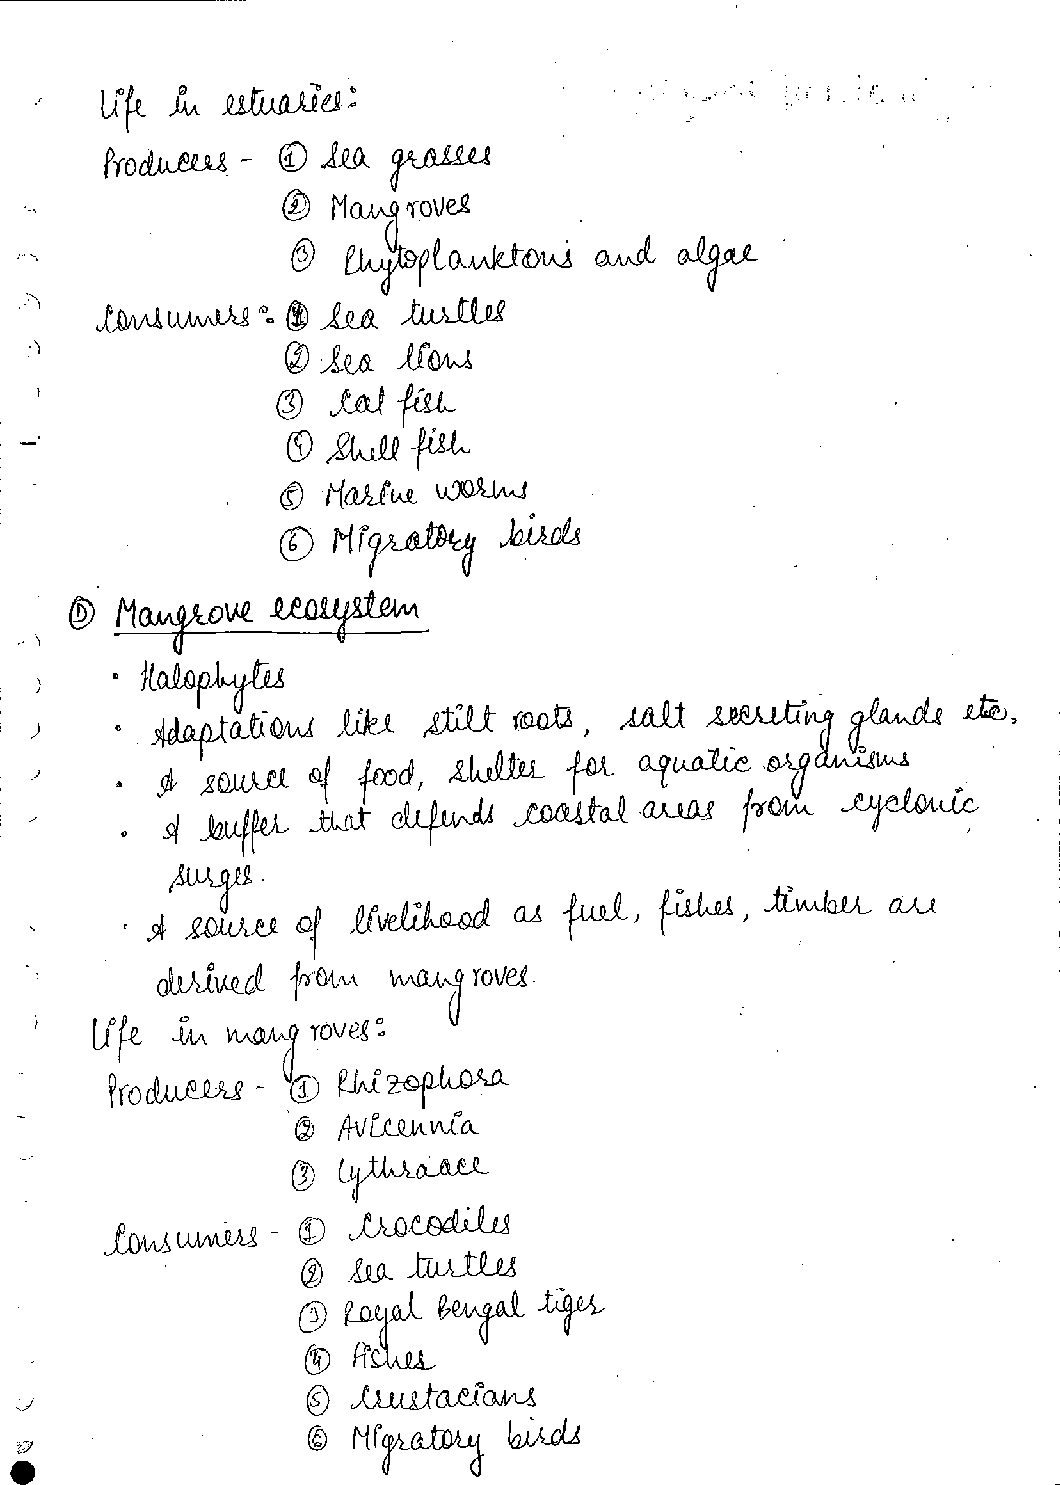 Life in estuaries:
Producers - ① Sea grasses
② Mangroves
③ Phytoplanktons and algae
Consumers: ① Sea turtles
② Sea lions
③ Cat fish
④ Shell fish
⑤ Marine worms
⑥ Migratory birds
Ⓓ Mangrove ecosystem
• Halophytes
• Adaptations like stilt roots, salt secreting glands etc.
• A source of food, shelter for aquatic organisms
• A buffer that defends coastal areas from cyclonic
surges.
• A source of livelihood as fuel, fishes, timber are
derived from mangroves.
Life in mangroves:
Producers - ① Rhizophora
② Avicennia
③ Lythraace
Consumers - ① Crocodiles
② Sea turtles
③ Royal Bengal tiger
④ Fishes
⑤ Crustacians
⑥ Migratory birds